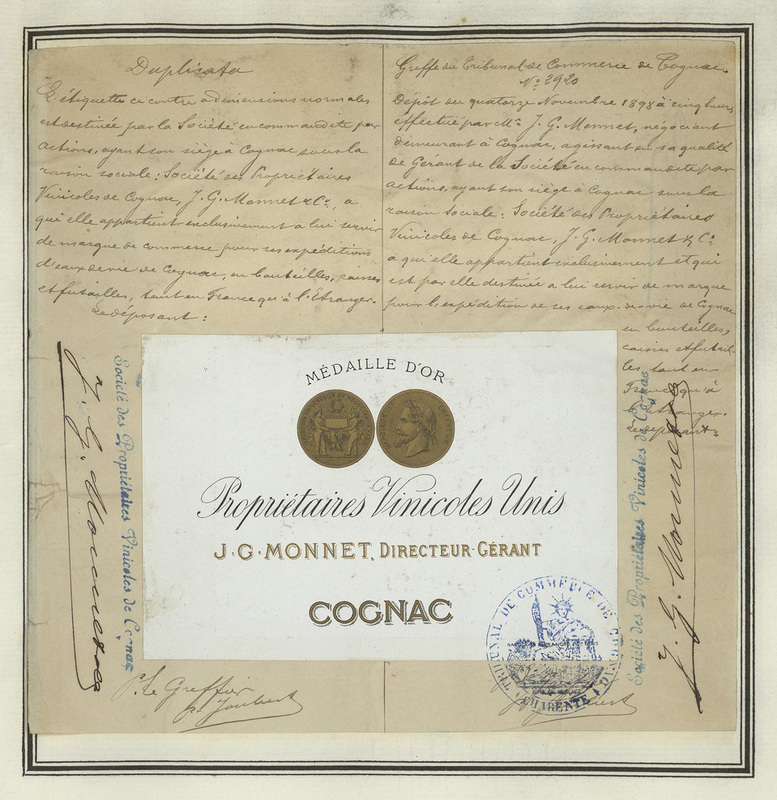 Duplicata
L'étiquette ci contre a dimensions normales
est destinée par la Société en commandite par
actions, ayant son siège à Cognac sous la
raison sociale: Société des Propriétaires
Vinicoles de Cognac, J. G. Monnet & Cº, a
qui elle appartient exclusivement a lui servir
de marque de commerce pour ses expéditions
d'eaux de vie de Cognac, en bouteilles, caisses
et futailles, tant en France qu'à l'Etranger.
Le déposant:
Greffe du Tribunal de Commerce de Cognac.
Nº 2920
Dépôt du quatorze Novembre 1898 à cinq heures
effectué par Mr. J. G. Monnet, négociant
demeurant à Cognac, agissant en sa qualité
de Gérant de la Société en commandite par
actions, ayant son siège à Cognac sous la
raison sociale: Société des Propriétaires
Vinicoles de Cognac, J. G. Monnet & Cº
a qui elle appartient exclusivement et qui
est par elle destinée a lui servir de marque
pour l'expédition de ses eaux-de-vie de Cognac
en bouteilles,
caisses et futail-
les tant en
France qu'à
l'Etranger.
Le déposant
J. G. Monnet & Co
Société des Propriétaires Vinicoles de Cognac
MÉDAILLE D'OR
Propriétaires Vinicoles Unis
J. G. MONNET, DIRECTEUR-GÉRANT
COGNAC
Société des Propriétaires Vinicoles de Cognac
J. G. Monnet & Co
TRIBUNAL DE COMMERCE DE COGNAC
(CHARENTE)
P. Le Greffier
Joubert